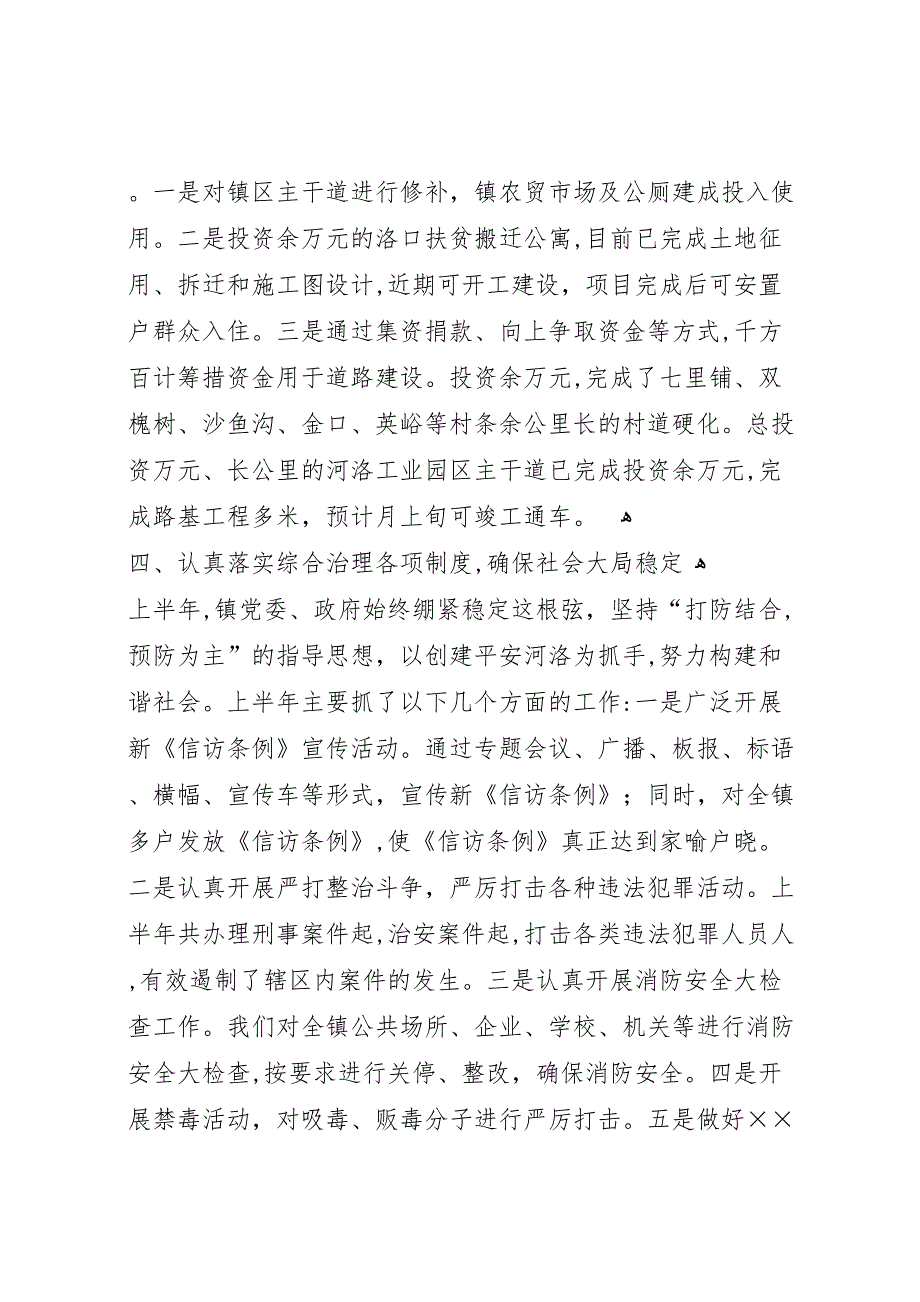 。一是对镇区主干道进行修补，镇农贸市场及公厕建成投入使
用。二是投资余万元的洛口扶贫搬迁公寓,目前已完成土地征
用、拆迁和施工图设计,近期可开工建设，项目完成后可安置
户群众入住。三是通过集资捐款、向上争取资金等方式,千方
百计筹措资金用于道路建设。投资余万元,完成了七里铺、双
槐树、沙鱼沟、金口、英峪等村条余公里长的村道硬化。总投
资万元、长公里的河洛工业园区主干道已完成投资余万元,完
成路基工程多米，预计月上旬可竣工通车。 ﻫ
四、认真落实综合治理各项制度,确保社会大局稳定 ﻫ
上半年,镇党委、政府始终绷紧稳定这根弦，坚持“打防结合,
预防为主”的指导思想，以创建平安河洛为抓手,努力构建和
谐社会。上半年主要抓了以下几个方面的工作:一是广泛开展
新《信访条例》宣传活动。通过专题会议、广播、板报、标语
、横幅、宣传车等形式，宣传新《信访条例》；同时，对全镇
多户发放《信访条例》,使《信访条例》真正达到家喻户晓。
二是认真开展严打整治斗争，严厉打击各种违法犯罪活动。上
半年共办理刑事案件起,治安案件起,打击各类违法犯罪人员人
,有效遏制了辖区内案件的发生。三是认真开展消防安全大检
查工作。我们对全镇公共场所、企业、学校、机关等进行消防
安全大检查,按要求进行关停、整改，确保消防安全。四是开
展禁毒活动，对吸毒、贩毒分子进行严厉打击。五是做好××